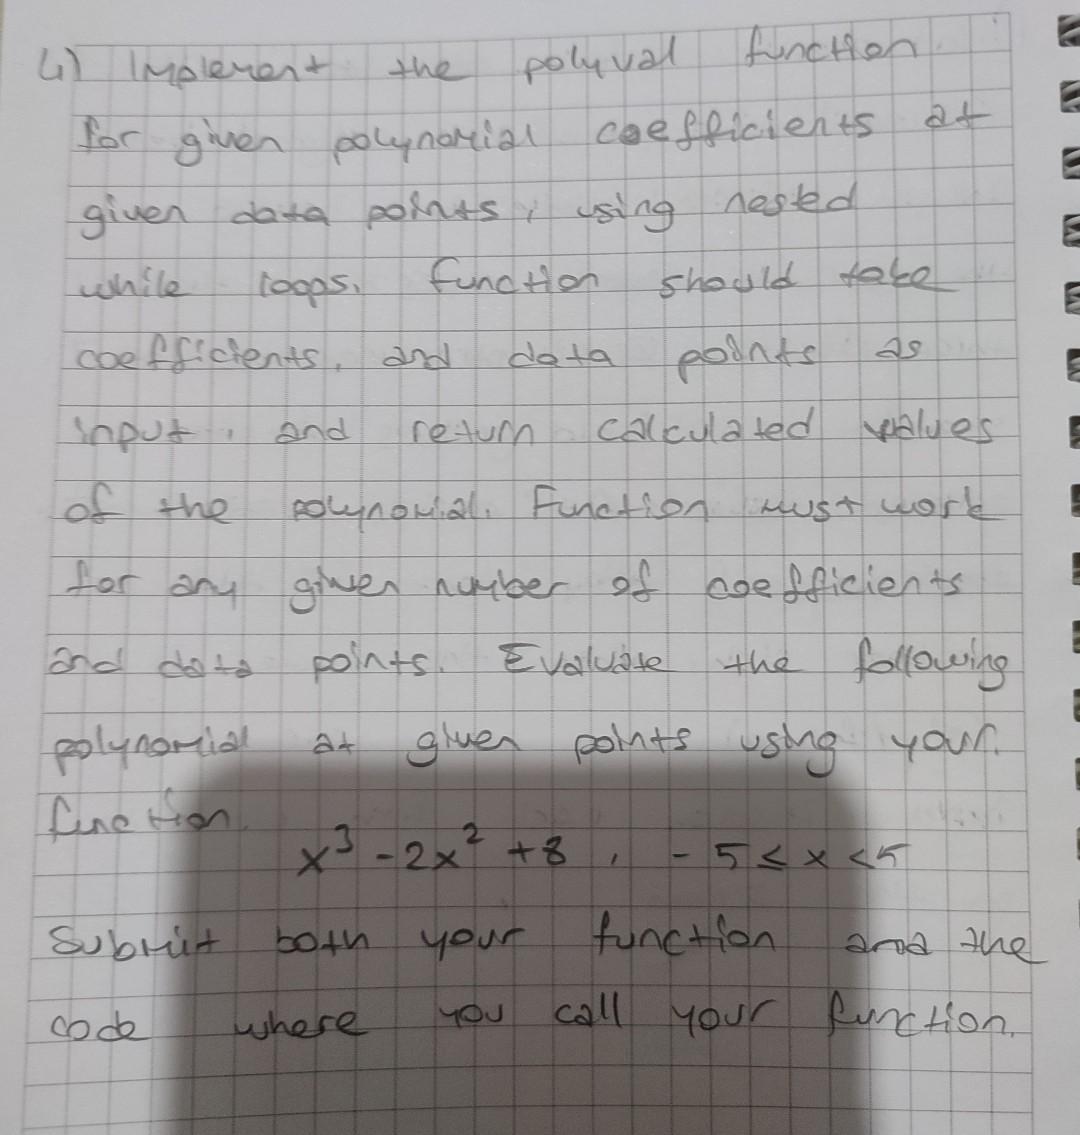 4) Implement the polyval function
for given polynomial coefficients at
given data points, using nested
while loops. Function should take
coefficients, and data points as
input, and return calculated values
of the polynomial. Function must work
for any given number of coefficients
and data points. Evaluate the following
polynomial at given points using your
function.
x³ - 2x² + 8 , - 5 ≤ x < 5
Submit both your function and the
code where you call your function.